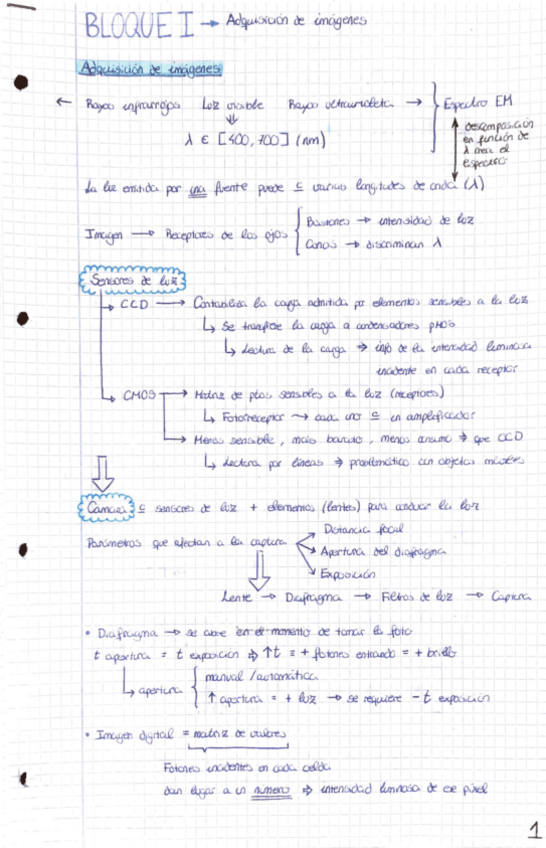 BLOQUE I → Adquisición de imágenes
Adquisición de imágenes
← Rayos infrarrojos Luz visible Rayos ultravioleta → } Espectro EM
⇓
λ ∈ [400, 700] (nm)
descomposición
en función de
λ crea el
espectro
La luz emitida por una fuente puede ⊆ varias longitudes de onda (λ)
Imagen → Receptores de los ojos { Bastones → intensidad de luz
Conos → discriminan λ
Sensores de luz
→ CCD → Contabiliza la carga admitida por elementos sensibles a la luz
↳ Se transfiere la carga a condensadores pMOS
↳ Lectura de la carga ⇒ info de la intensidad luminosa
incidente en cada receptor
→ CMOS → Matriz de ptos sensibles a la luz (receptores)
↳ Fotorreceptor → cada uno ⊆ un amplificador
→ Menos sensible, más barato, menos consumo ⇒ que CCD
↳ Lectura por líneas ⇒ problemático con objetos móviles
Cámara ⊆ sensores de luz + elementos (lentes) para conducir la luz
Parámetros que afectan a la captura
Distancia focal
Apertura del diafragma
Exposición
Lente → Diafragma → Filtros de luz → Captura
• Diafragma → se abre en el momento de tomar la foto
t apertura = t exposición ⇒ ↑t = + fotones entrando = + brillo
↳ apertura { manual / automática
↑ apertura = + luz → se requiere - t exposición
• Imagen digital = matriz de valores
Fotones incidentes en cada celda
dan lugar a un número ⇒ intensidad luminosa de ese píxel
1